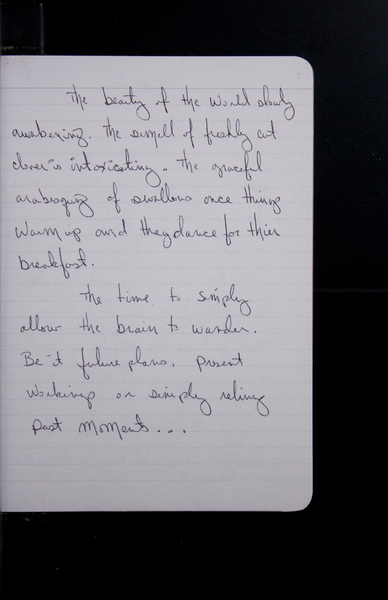 The beauty of the world slowly
awakening. The smell of freshly cut
clover is intoxicating. The graceful
arabesquing of swallows once things
warm up and they dance for thier
breakfast.
The time to simply
allow the brain to wander.
Be it future plans, present
workings or simply reliving
past moments...